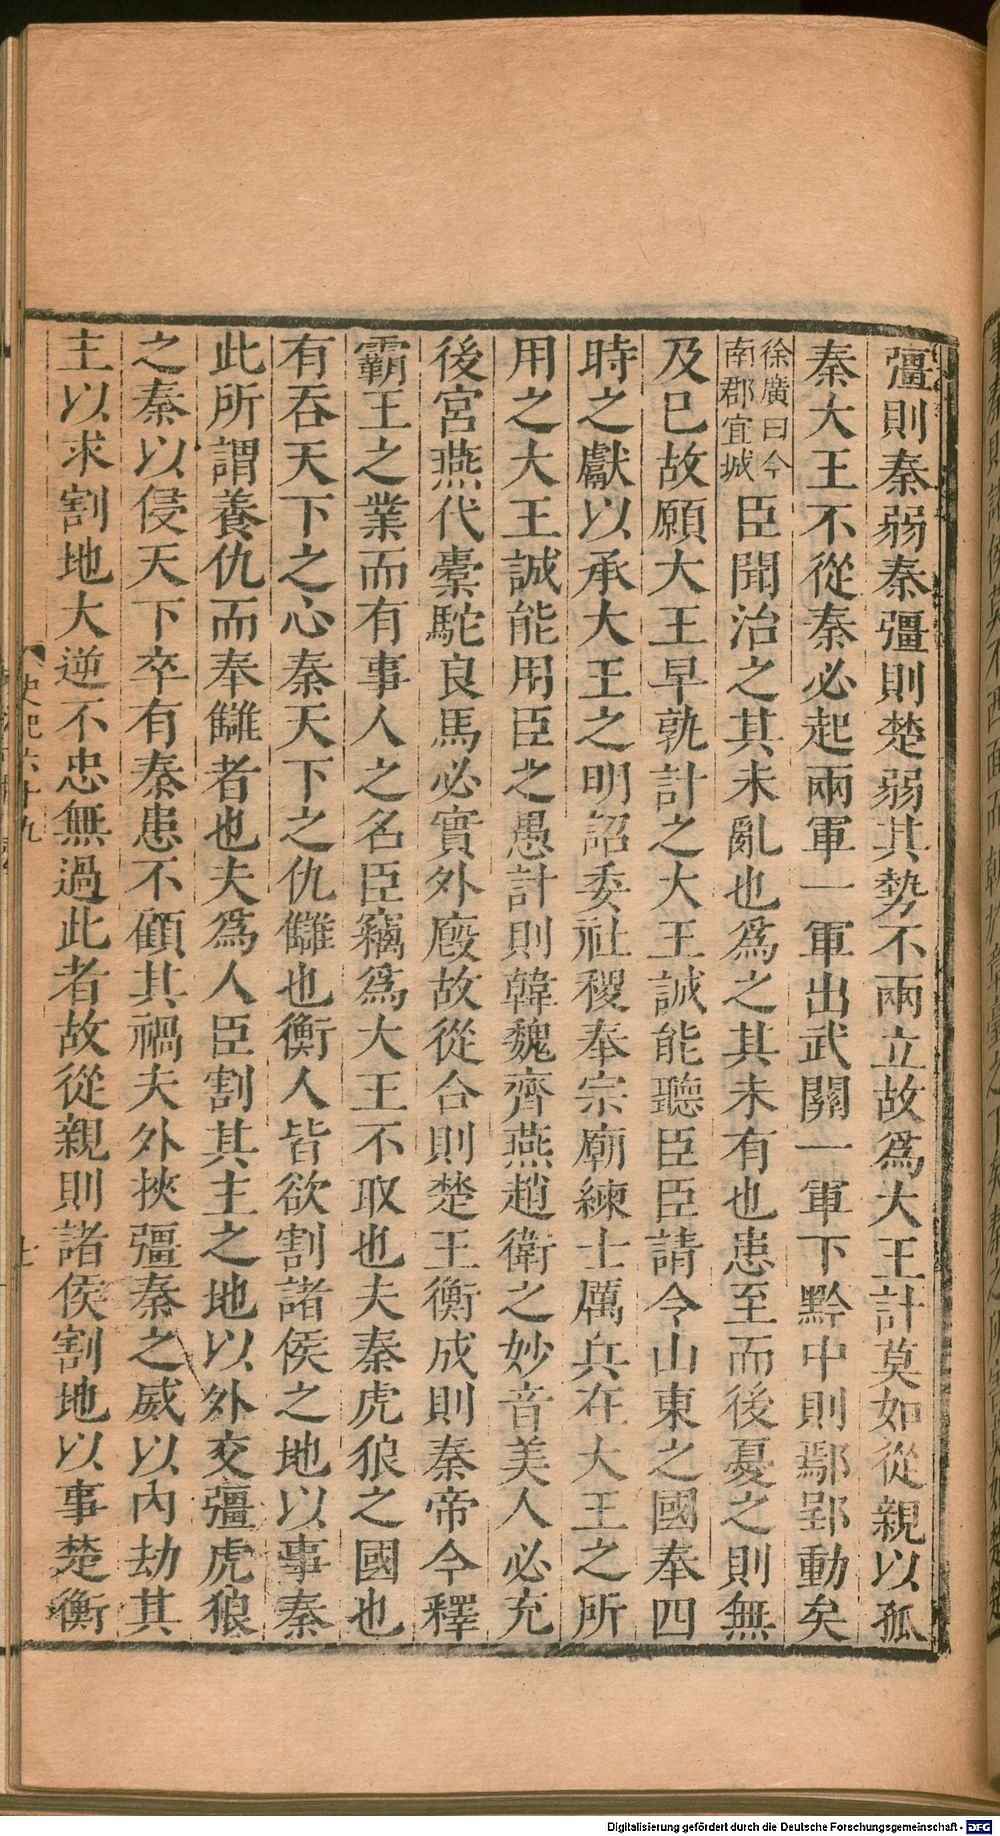 彊則秦弱秦彊則楚弱其勢不兩立故爲大王計莫如從親以孤
秦大王不從秦必起兩軍一軍出武關一軍下黔中則鄢郢動矣
徐廣曰今
南郡宜城
臣聞治之其未亂也爲之其未有也患至而後憂之則無
及已故願大王早孰計之大王誠能聽臣臣請令山東之國奉四
時之獻以承大王之明詔委社稷奉宗廟練士厲兵在大王之所
用之大王誠能用臣之愚計則韓魏齊燕趙衛之妙音美人必充
後宮燕代橐駝良馬必實外廏故從合則楚王衡成則秦帝今釋
霸王之業而有事人之名臣竊爲大王不取也夫秦虎狼之國也
有吞天下之心秦天下之仇讎也衡人皆欲割諸侯之地以事秦
此所謂養仇而奉讎者也夫爲人臣割其主之地以外交彊虎狼
之秦以侵天下卒有秦患不顧其禍夫外挾彊秦之威以內劫其
主以求割地大逆不忠無過此者故從親則諸侯割地以事楚衡
史記六十九
七
Digitalisierung gefördert durch die Deutsche Forschungsgemeinschaft - DFG